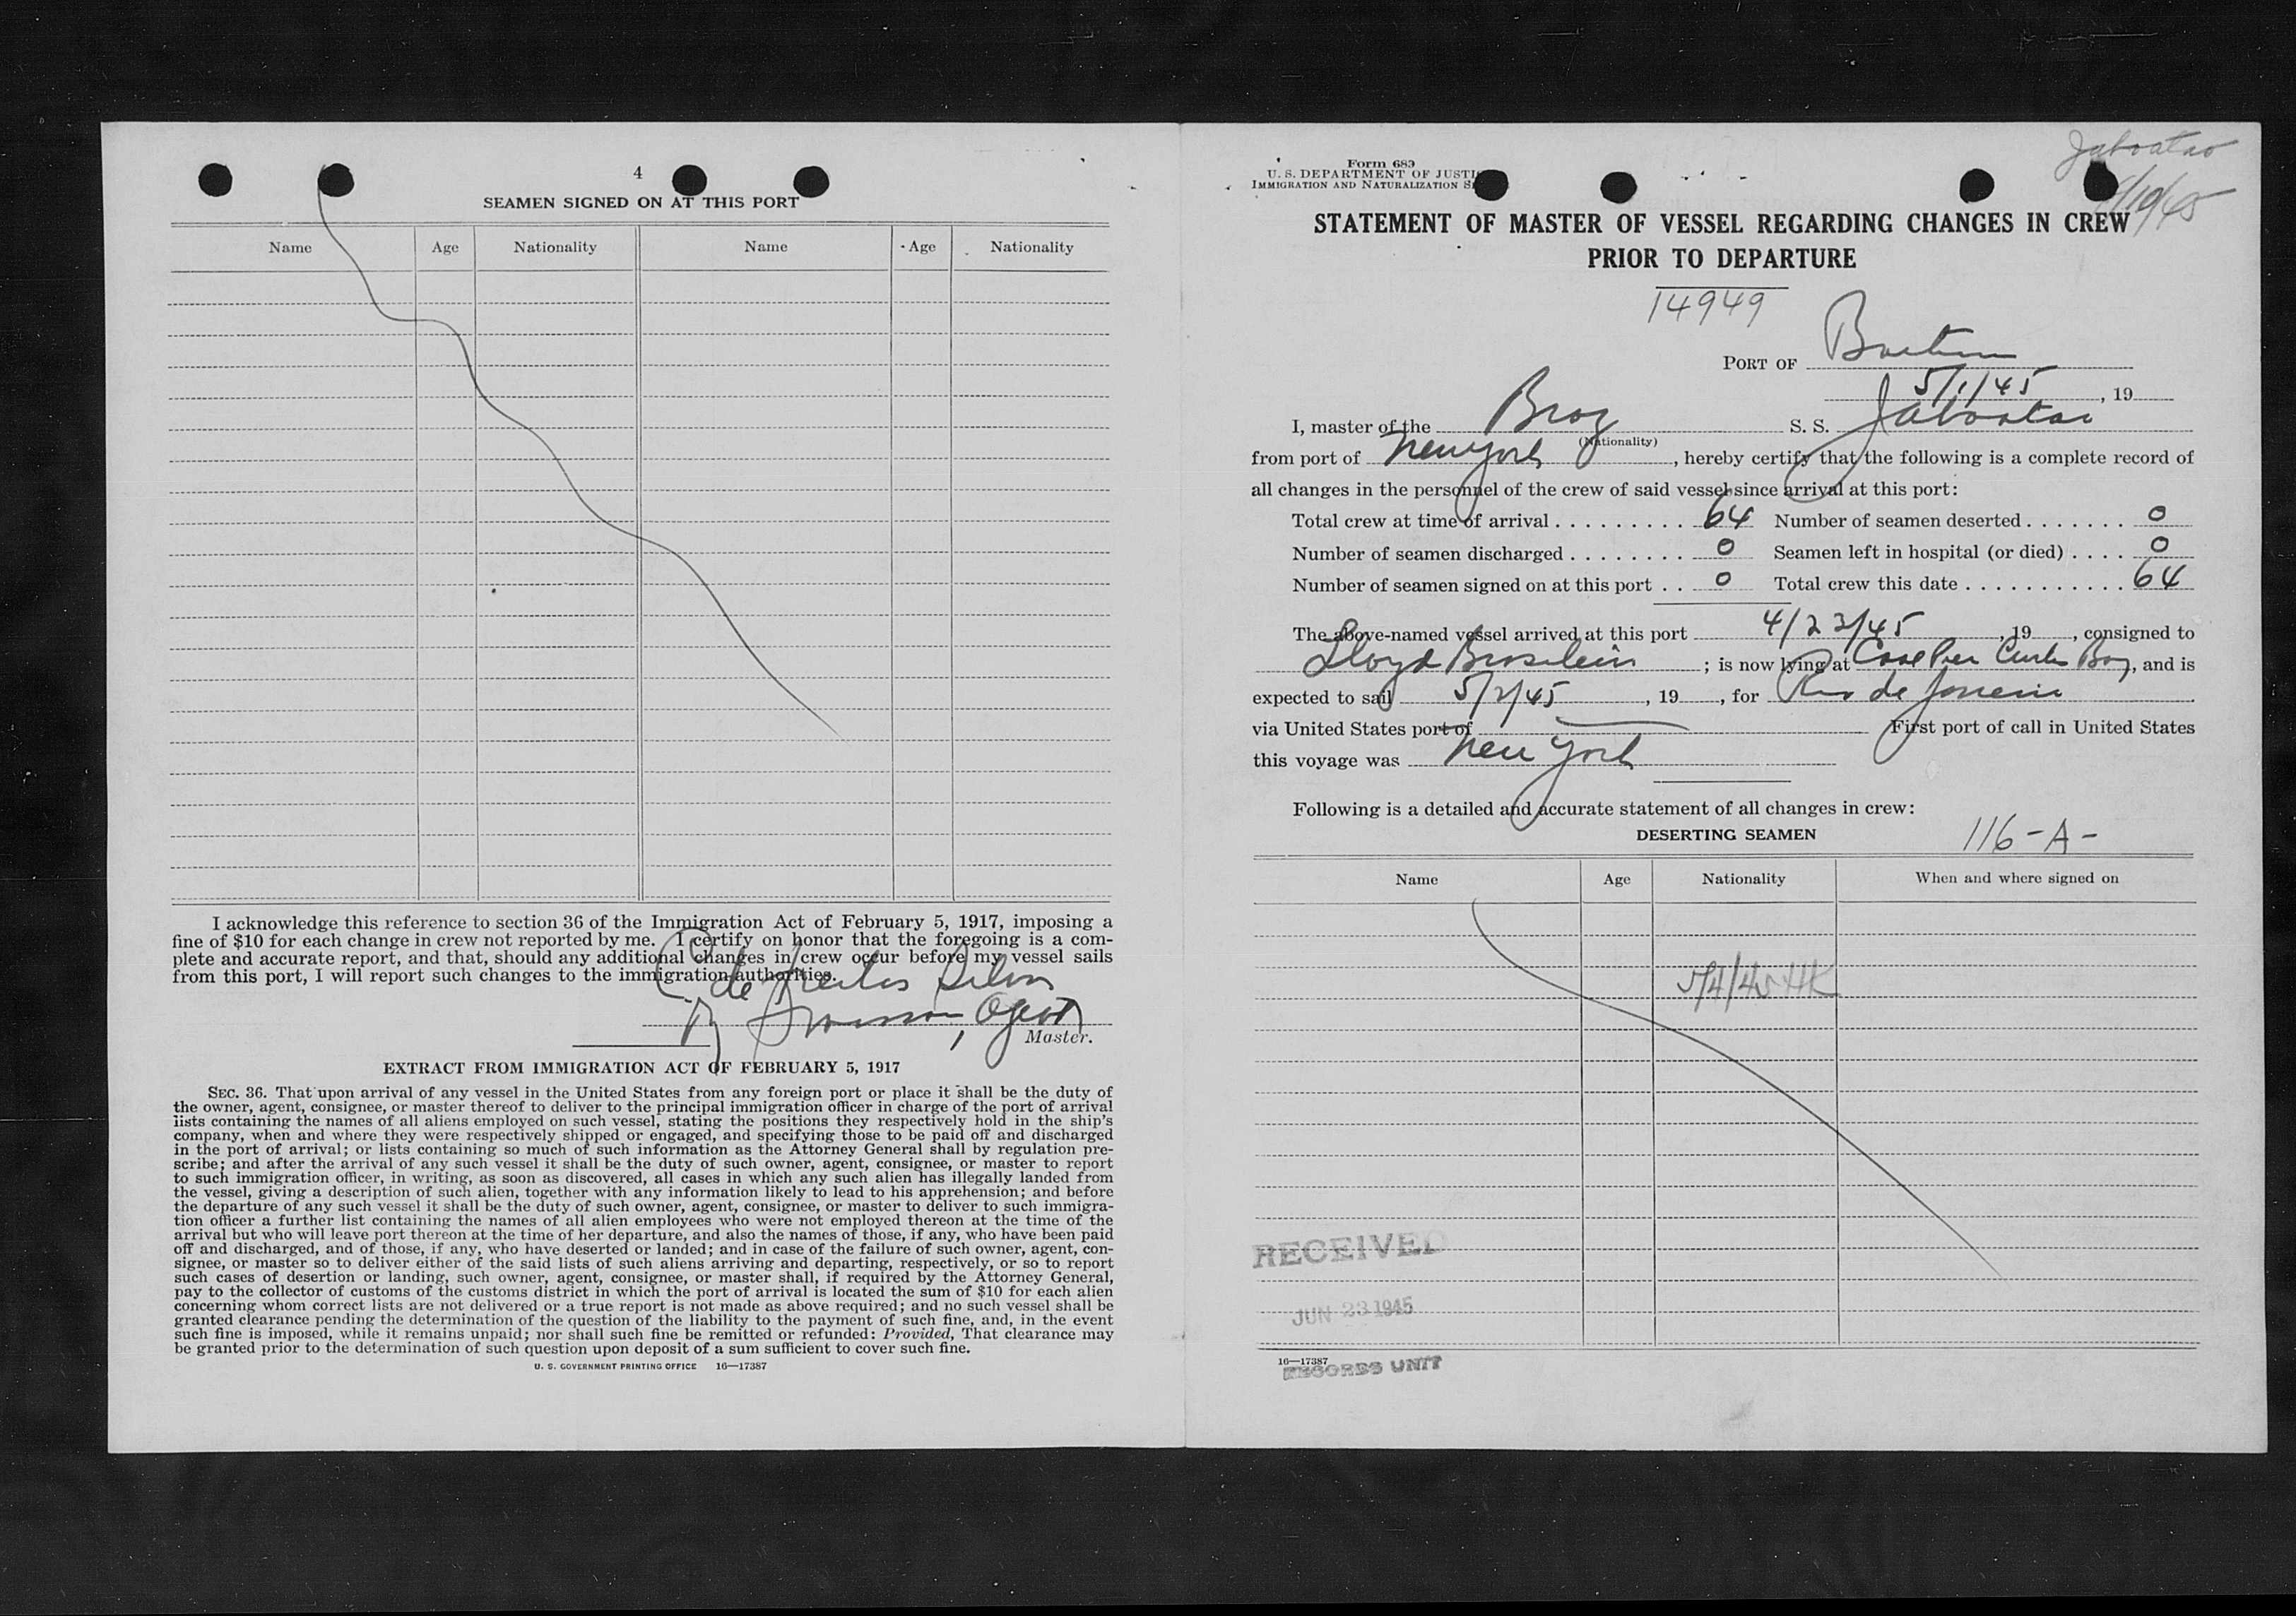 4
SEAMEN SIGNED ON AT THIS PORT
Name Age Nationality Name Age Nationality
I acknowledge this reference to section 36 of the Immigration Act of February 5, 1917, imposing a
fine of $10 for each change in crew not reported by me. I certify on honor that the foregoing is a com-
plete and accurate report, and that, should any additional changes in crew occur before my vessel sails
from this port, I will report such changes to the immigration authorities.
de Freitas Silva
Agent
Master.
EXTRACT FROM IMMIGRATION ACT OF FEBRUARY 5, 1917
SEC. 36. That upon arrival of any vessel in the United States from any foreign port or place it shall be the duty of
the owner, agent, consignee, or master thereof to deliver to the principal immigration officer in charge of the port of arrival
lists containing the names of all aliens employed on such vessel, stating the positions they respectively hold in the ship's
company, when and where they were respectively shipped or engaged, and specifying those to be paid off and discharged
in the port of arrival; or lists containing so much of such information as the Attorney General shall by regulation pre-
scribe; and after the arrival of any such vessel it shall be the duty of such owner, agent, consignee, or master to report
to such immigration officer, in writing, as soon as discovered, all cases in which any such alien has illegally landed from
the vessel, giving a description of such alien, together with any information likely to lead to his apprehension; and before
the departure of any such vessel it shall be the duty of such owner, agent, consignee, or master to deliver to such immigra-
tion officer a further list containing the names of all alien employees who were not employed thereon at the time of the
arrival but who will leave port thereon at the time of her departure, and also the names of those, if any, who have been paid
off and discharged, and of those, if any, who have deserted or landed; and in case of the failure of such owner, agent, con-
signee, or master so to deliver either of the said lists of such aliens arriving and departing, respectively, or so to report
such cases of desertion or landing, such owner, agent, consignee, or master shall, if required by the Attorney General,
pay to the collector of customs of the customs district in which the port of arrival is located the sum of $10 for each alien
concerning whom correct lists are not delivered or a true report is not made as above required; and no such vessel shall be
granted clearance pending the determination of the question of the liability to the payment of such fine, and, in the event
such fine is imposed, while it remains unpaid; nor shall such fine be remitted or refunded: Provided, That clearance may
be granted prior to the determination of such question upon deposit of a sum sufficient to cover such fine.
U. S. GOVERNMENT PRINTING OFFICE 16—17387
Jaboatao
Form 689
U. S. DEPARTMENT OF JUSTI
IMMIGRATION AND NATURALIZATION S
STATEMENT OF MASTER OF VESSEL REGARDING CHANGES IN CREW
PRIOR TO DEPARTURE
14949
PORT OF Boston
5/1/45, 19
I, master of the Braz S. S. Jaboatao
(Nationality)
from port of New York, hereby certify that the following is a complete record of
all changes in the personnel of the crew of said vessel since arrival at this port:
Total crew at time of arrival . . . . . . . . . 64 Number of seamen deserted . . . . . . . 0
Number of seamen discharged . . . . . . . . 0 Seamen left in hospital (or died) . . . . 0
Number of seamen signed on at this port . . 0 Total crew this date . . . . . . . . . . . 64
The above-named vessel arrived at this port 4/23/45, 19 , consigned to
Lloyd Brasileiro ; is now lying at Coal Pier Curtis Bay, and is
expected to sail 5/2/45, 19 , for Rio de Janeiro
via United States port of — First port of call in United States
this voyage was New York
Following is a detailed and accurate statement of all changes in crew:
DESERTING SEAMEN
116-A-
Name Age Nationality When and where signed on
5/4/45 HK
RECEIVED
JUN 23 1945
16—17387
RECORDS UNIT